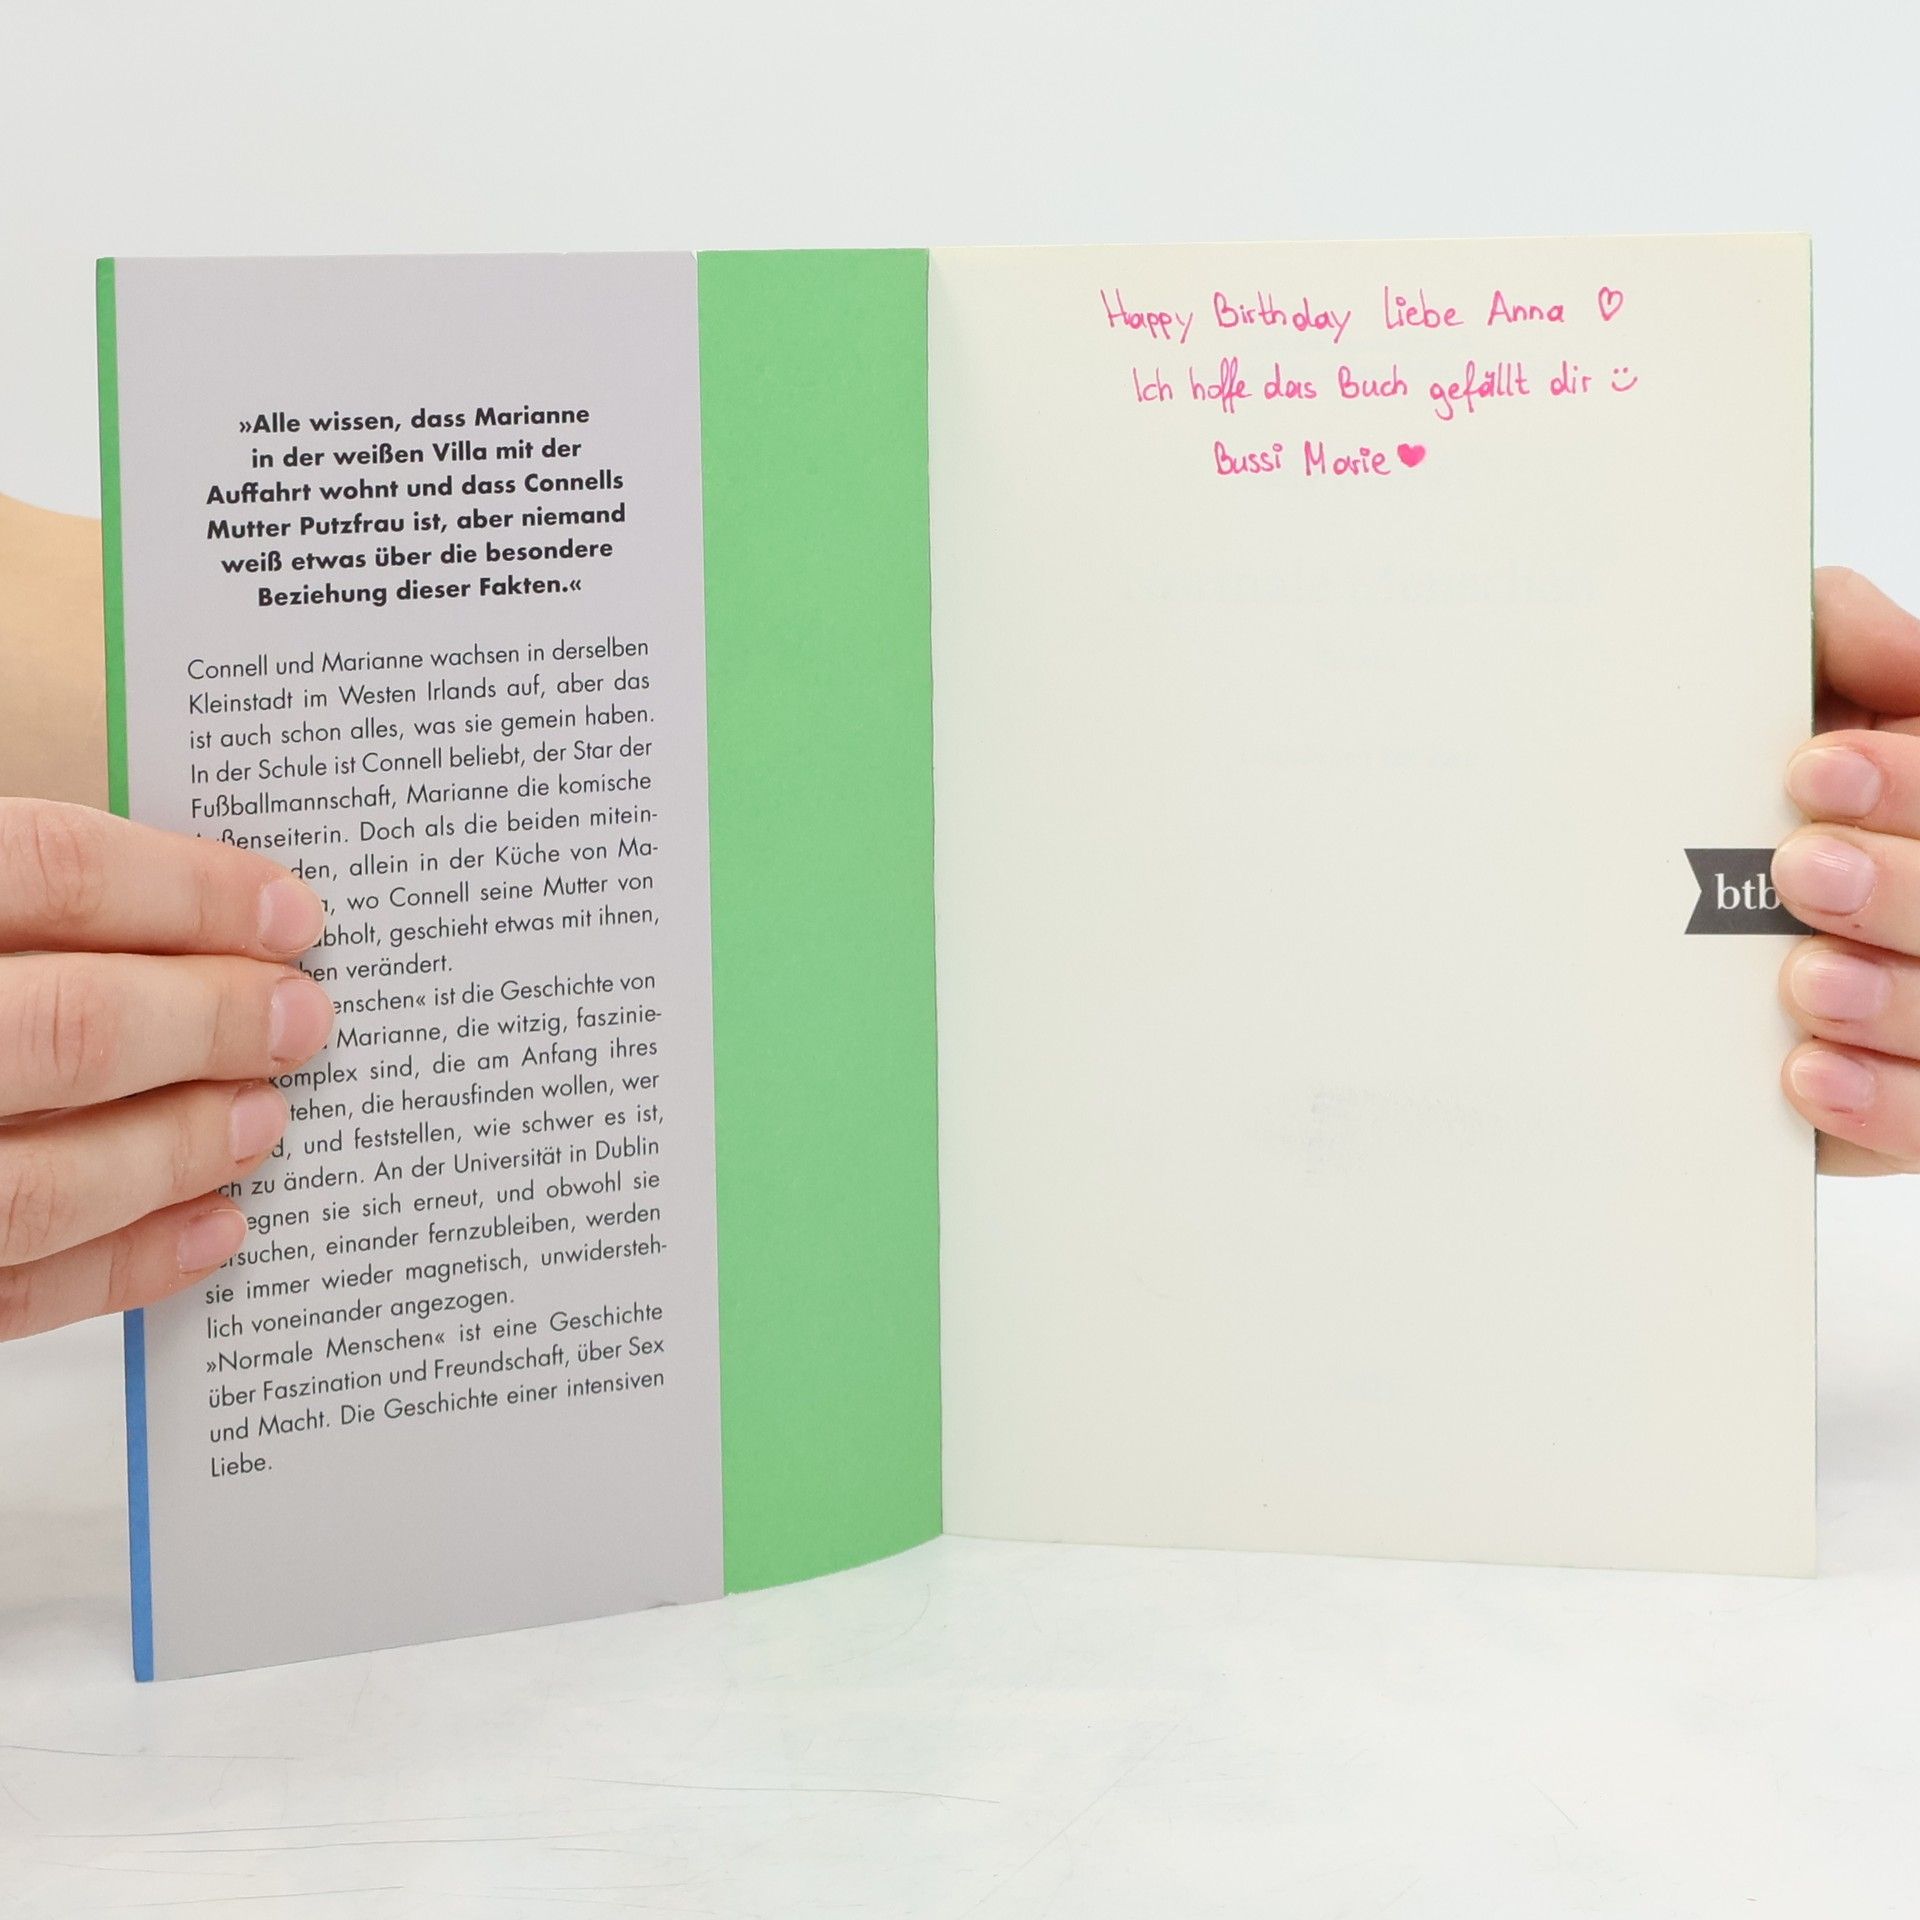 »Alle wissen, dass Marianne
in der weißen Villa mit der
Auffahrt wohnt und dass Connells
Mutter Putzfrau ist, aber niemand
weiß etwas über die besondere
Beziehung dieser Fakten.«
Connell und Marianne wachsen in derselben
Kleinstadt im Westen Irlands auf, aber das
ist auch schon alles, was sie gemein haben.
In der Schule ist Connell beliebt, der Star der
Fußballmannschaft, Marianne die komische
ßenseiterin. Doch als die beiden mitein-
den, allein in der Küche von Ma-
, wo Connell seine Mutter von
bholt, geschieht etwas mit ihnen,
en verändert.
enschen« ist die Geschichte von
Marianne, die witzig, faszinie-
komplex sind, die am Anfang ihres
tehen, die herausfinden wollen, wer
d, und feststellen, wie schwer es ist,
ch zu ändern. An der Universität in Dublin
egnen sie sich erneut, und obwohl sie
rsuchen, einander fernzubleiben, werden
sie immer wieder magnetisch, unwidersteh-
lich voneinander angezogen.
»Normale Menschen« ist eine Geschichte
über Faszination und Freundschaft, über Sex
und Macht. Die Geschichte einer intensiven
Liebe.
Happy Birthday liebe Anna ♡
Ich hoffe das Buch gefällt dir ☺
Bussi Marie ♥
btb